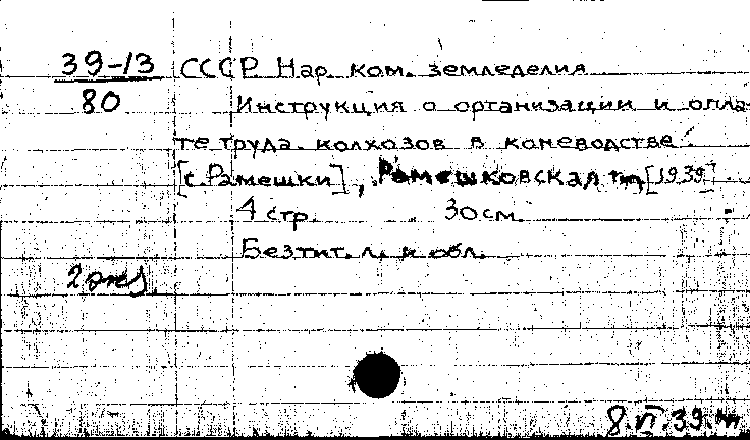 39-13 СССР. Нар. ком. земледелия
80 Инструкция о организации и опла-
те труда. колхозов в коневодстве.
[с. Рамешки], Рамешковская тип, [1939]
4 стр. 30 см.
Без тит. л. и обл.
2 экз.
8.VI.39.